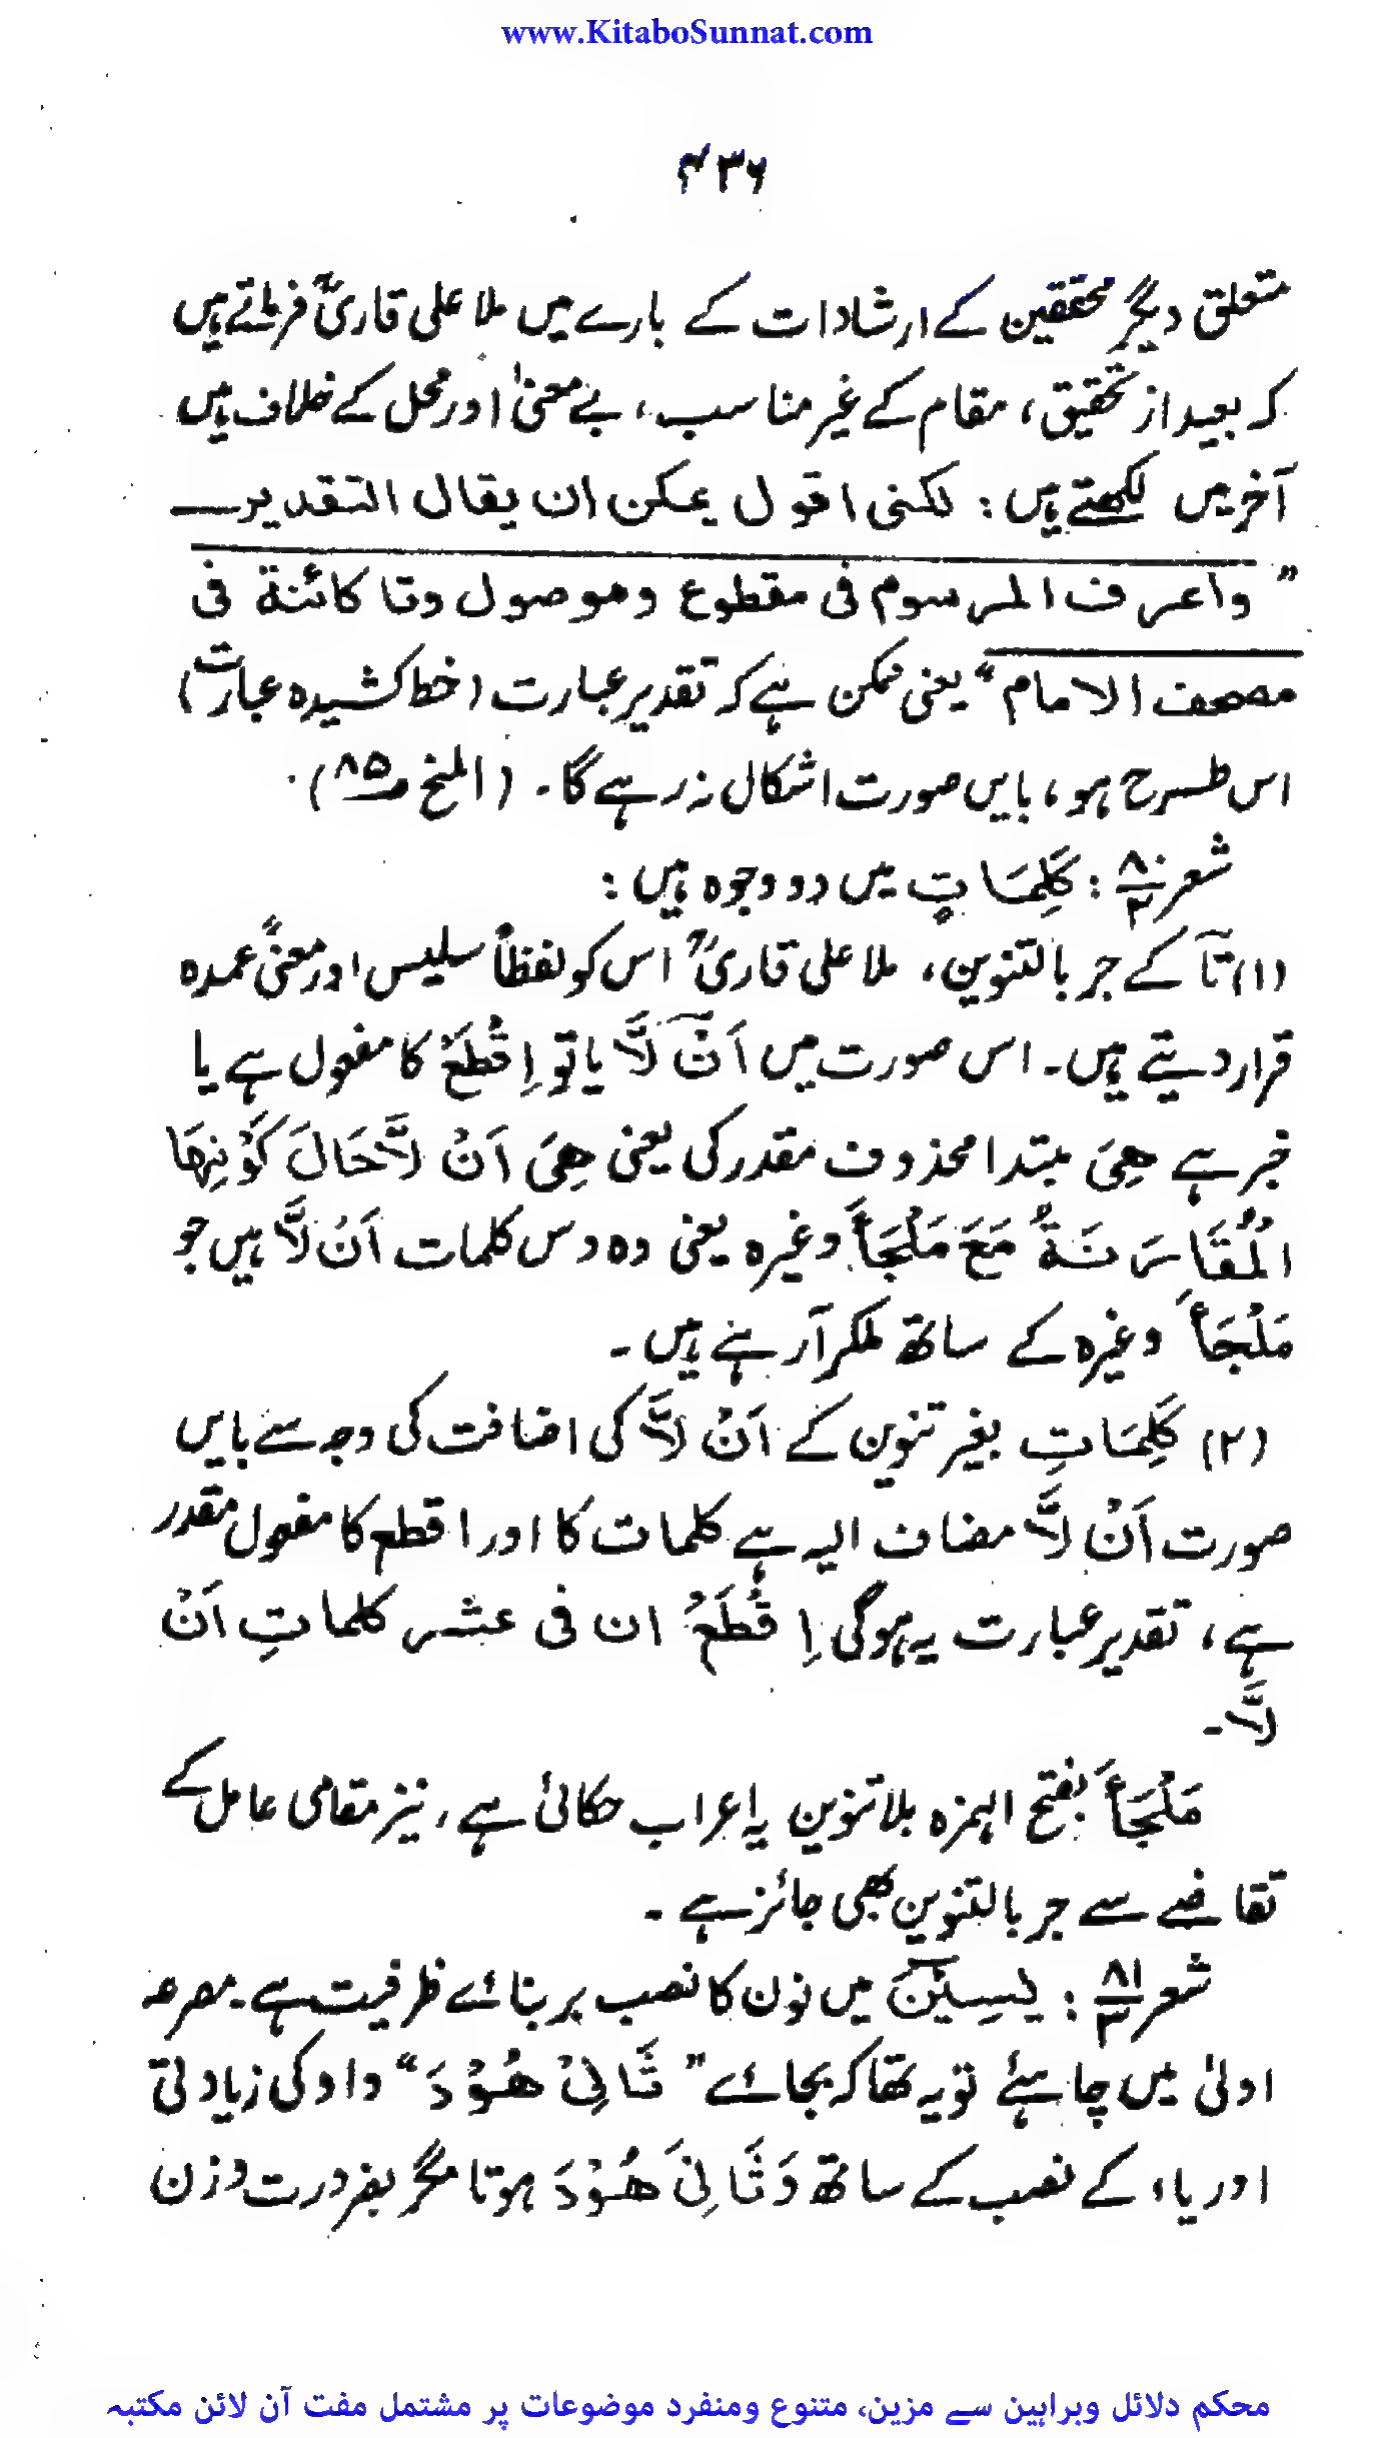 www.KitaboSunnat.com
۴۳۶
متعلق دیگر محققین کے ارشادات کے بارے میں ملا علی قاریؒ فرماتے ہیں
کہ بعید از تحقیق، مقام کے غیر مناسب، بے معنیٰ اور محل کے خلاف ہیں
آخر میں لکھتے ہیں: لکنی اقول یمکن ان یقال التقدیر
”واعرف المرسوم فی مقطوع وموصول وتا کائنة فی
مصحف الامام“ یعنی ممکن ہے کہ تقدیر عبارت (خط کشیدہ عبارت)
اس طرح ہو، بایں صورت اشکال نہ رہے گا۔ (المنح ص۸۵)
شعر ۸۰/۲ : كَلِمَاتٍ میں دو وجوہ ہیں:
(۱) تآ کے جر بالتنوین، ملا علی قاریؒ اس کو لفظاً سلیس اور معنیً عمدہ
قرار دیتے ہیں۔ اس صورت میں اَنْ لَّا یا تو اِقْطَعْ کا مفعول ہے یا
خبر ہے هِیَ مبتدا محذوف مقدر کی یعنی هِیَ اَنْ لَّا حَالَ كَوْنِهَا
الْمُقَارَنَةُ مَعَ مَلْجَأَ وغیرہ یعنی وہ دس کلمات اَنْ لَّا ہیں جو
مَلْجَأَ وغیرہ کے ساتھ ملکر آرہے ہیں۔
(۲) كَلِمَاتِ بغیر تنوین کے اَنْ لَّا کی اضافت کی وجہ سے بایں
صورت اَنْ لَّا مضاف الیہ ہے کلمات کا اور اقطع کا مفعول مقدر
ہے، تقدیر عبارت یہ ہوگی اِقْطَعْ ان فی عشر کلماتِ اَنْ
لَّا۔
مَلْجَأَ بفتح الہمزہ بلا تنوین یہ اعراب حکائی ہے، نیز مقامی عامل کے
تقاضے سے جر بالتنوین بھی جائز ہے۔
شعر ۸۱/۳ : يٰسِيْنَ میں نون کا نصب بر بنائے ظرفیت ہے۔ مصرعہ
اولیٰ میں چاہئے تو یہ تھا کہ بجائے ”ثَانِیْ هُوْدَ“ واو کی زیادتی
اور یاء کے نصب کے ساتھ وَثَانِیَ هُوْدَ ہوتا مگر بضرورت وزن
محکم دلائل وبراہین سے مزین، متنوع ومنفرد موضوعات پر مشتمل مفت آن لائن مکتبہ